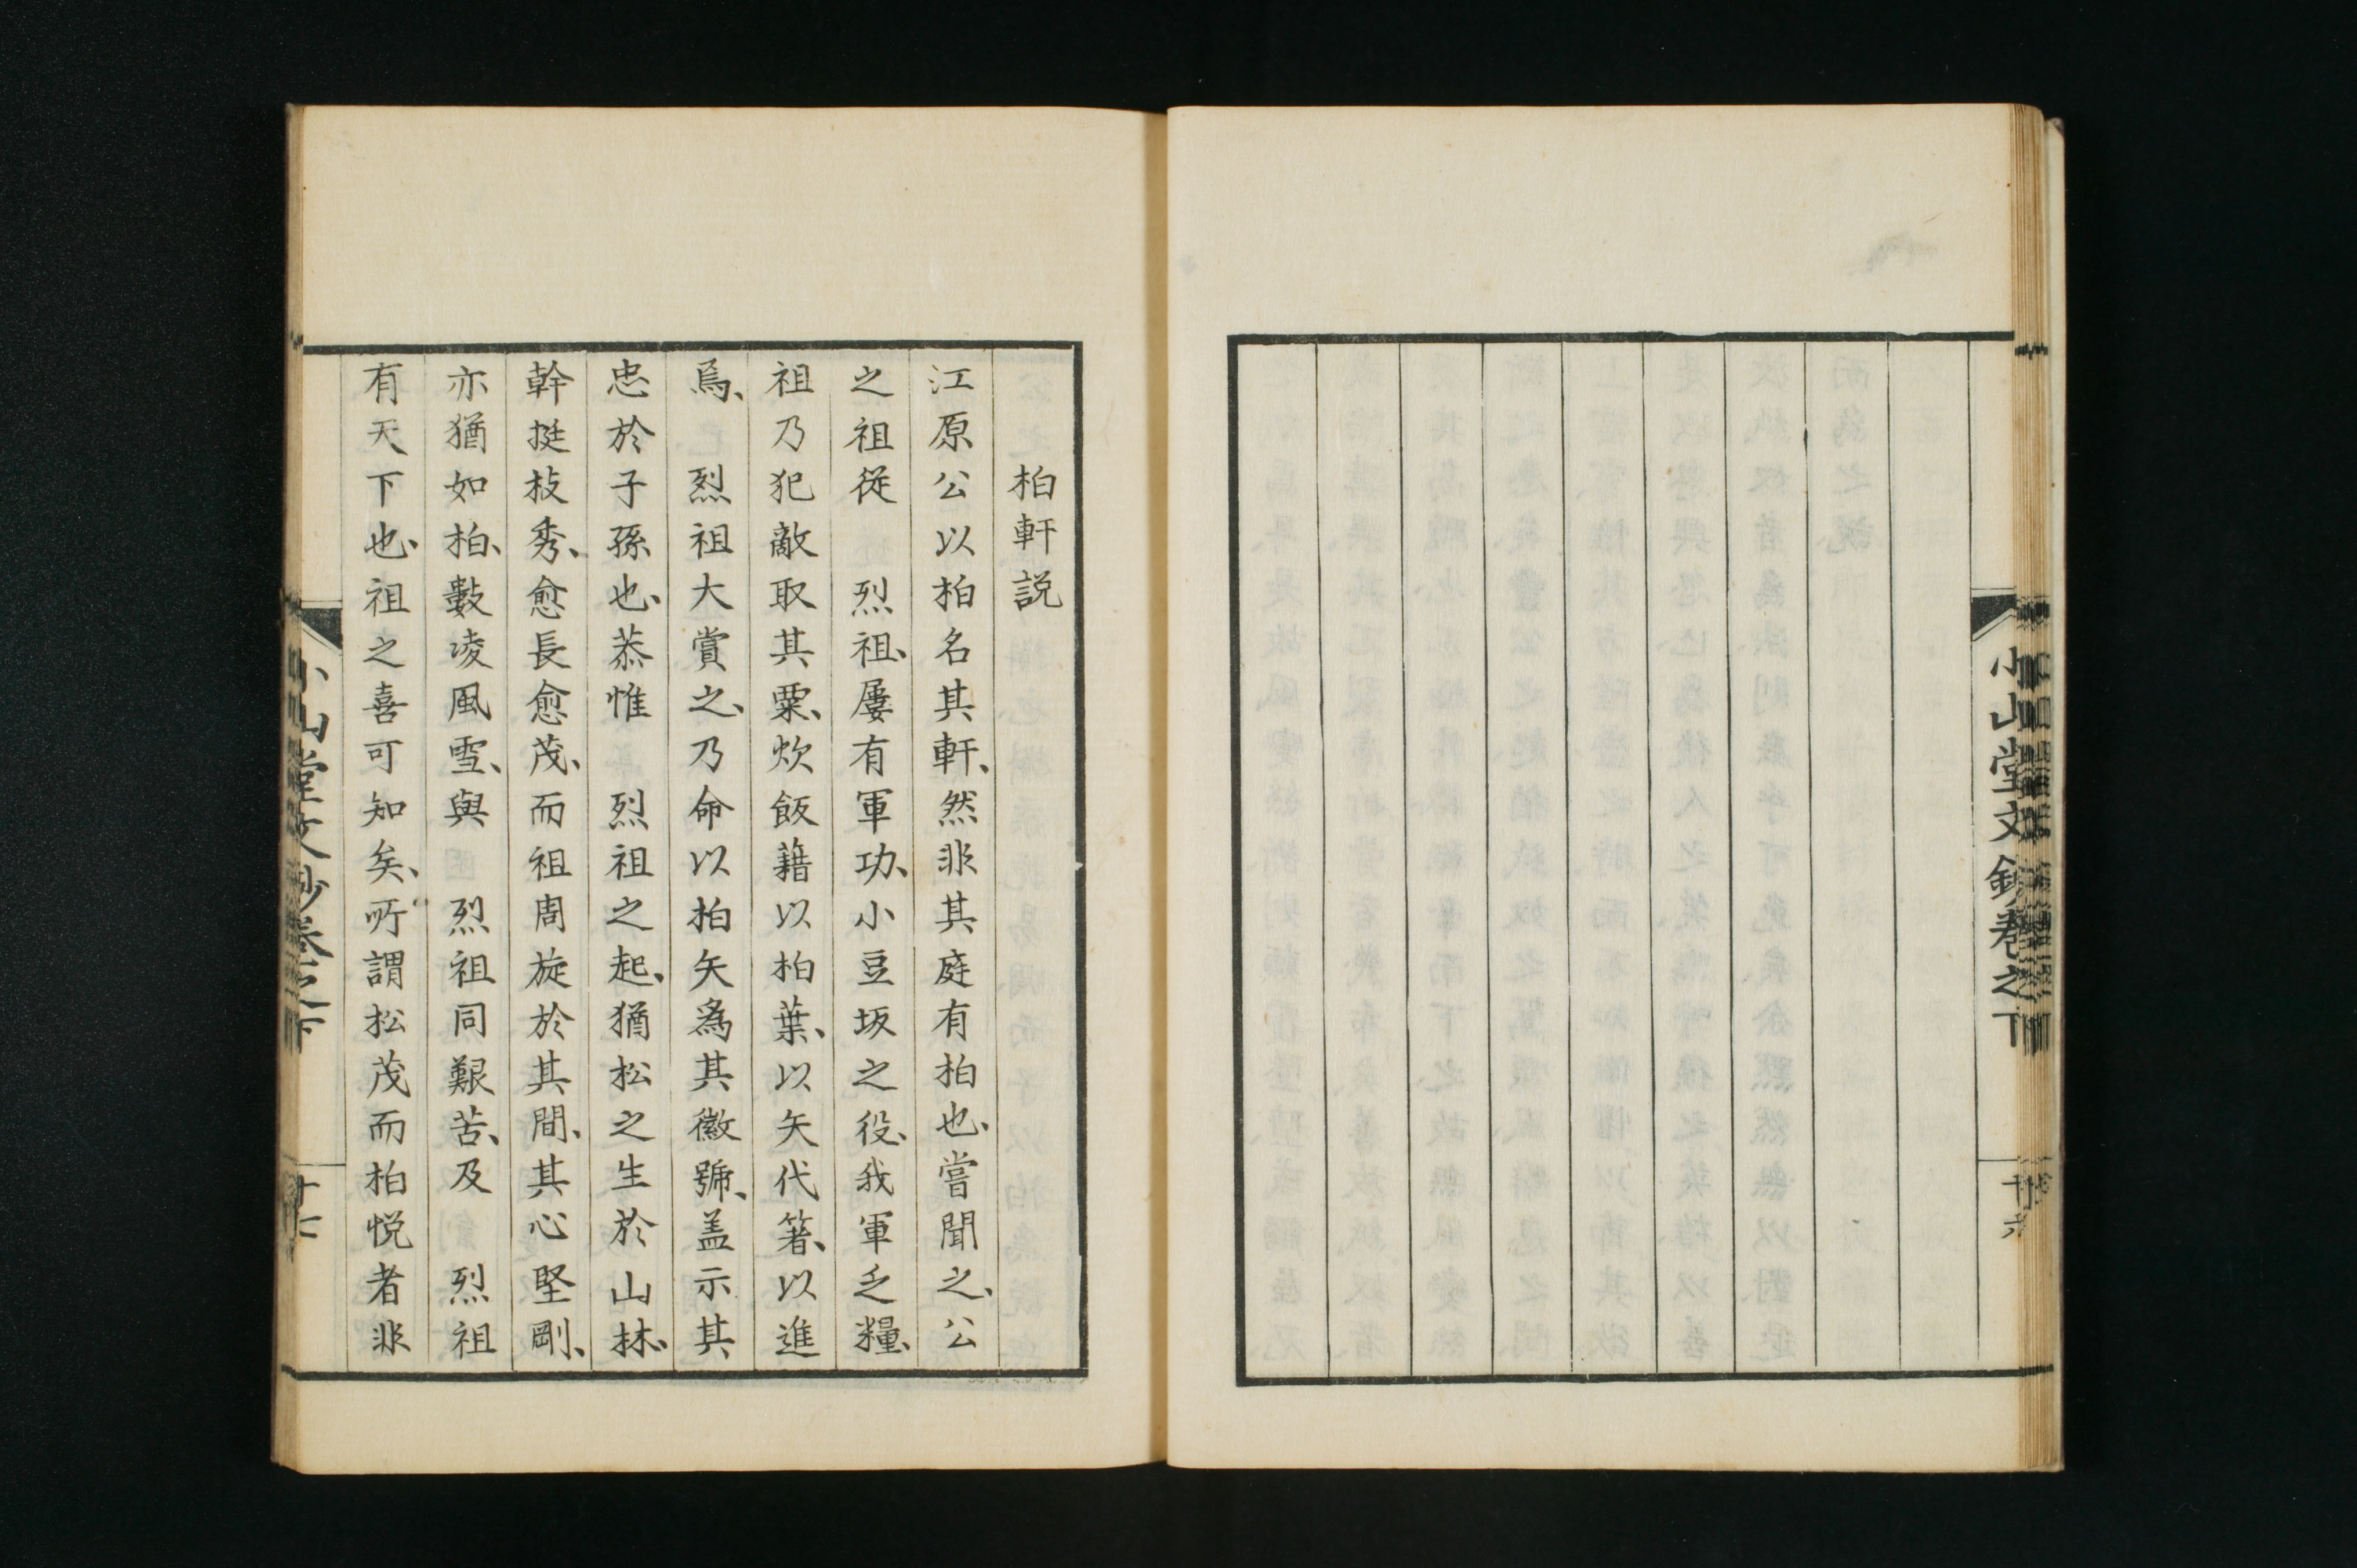 小山堂文鈔卷之下
柏軒説
江原公以柏名其軒、然非其庭有柏也、嘗聞之、公
之祖從　烈祖、屢有軍功、小豆坂之役、我軍乏糧、
祖乃犯敵取其粟、炊飯藉以柏葉、以矢代箸、以進
焉、　烈祖大賞之、乃命以柏矢爲其徽號、盖示其
忠於子孫也、恭惟　烈祖之起、猶松之生於山林、
幹挺枝秀、愈長愈茂、而祖周旋於其間、其心堅剛、
亦猶如柏、數凌風雪、與　烈祖同艱苦、及　烈祖
有天下也、祖之喜可知矣、所謂松茂而柏悦者非
小山堂文鈔卷之下
十七